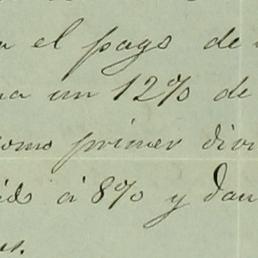 el pago de
un 12% de
como primer divi
ido á 8% y dan